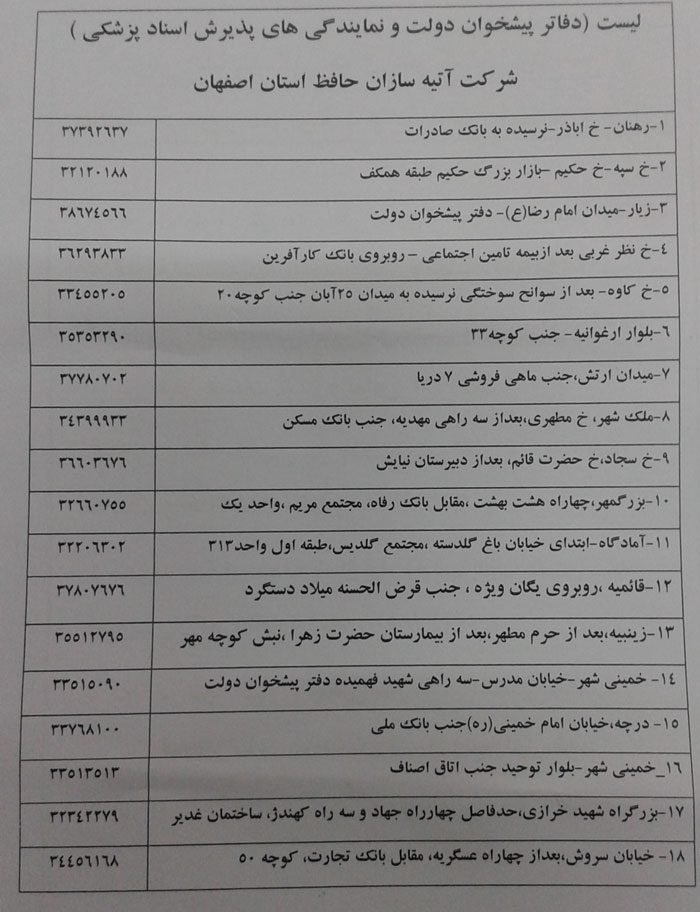 لیست (دفاتر پیشخوان دولت و نمایندگی های پذیرش اسناد پزشکی )
شرکت آتیه سازان حافظ استان اصفهان
۱-رهنان- خ اباذر-نرسیده به بانک صادرات ۳۷۳۹۲۶۳۷
۲-خ سپه-خ حکیم -بازار بزرگ حکیم طبقه همکف ۳۲۱۲۰۱۸۸
۳-زیار-میدان امام رضا(ع)- دفتر پیشخوان دولت ۳۸۶۷٤۵۶۶
٤-خ نظر غربی بعد ازبیمه تامین اجتماعی - روبروی بانک کارآفرین ۳۶۲۹۳۸۳۳
۵-خ کاوه- بعد از سوانح سوختگی نرسیده به میدان ۲۵آبان جنب کوچه۲۰ ۳۳٤۵۵۲۰۵
۶-بلوار ارغوانیه- جنب کوچه۳۳ ۳۵۳۵۳۲۹۰
۷-میدان ارتش،جنب ماهی فروشی ۷ دریا ۳۷۷۸۰۷۰۲
۸-ملک شهر، خ مطهری،بعداز سه راهی مهدیه، جنب بانک مسکن ۳٤۳۹۹۹۳۳
۹-خ سجاد،خ حضرت قائم، بعداز دبیرستان نیایش ۳۶۶۰۳۶۷۶
۱۰-بزرگمهر،چهاراه هشت بهشت ،مقابل بانک رفاه، مجتمع مریم ،واحد یک ۳۲۶۶۰۷۵۵
۱۱-آمادگاه-ابتدای خیابان باغ گلدسته ،مجتمع گلدیس،طبقه اول واحد۳۱۳ ۳۲۲۰۶۳۰۲
۱۲-قائمیه ،روبروی یگان ویژه ، جنب قرض الحسنه میلاد دستگرد ۳۷۸۰۷۶۷۶
۱۳-زینبیه،بعد از حرم مطهر،بعد از بیمارستان حضرت زهرا ،نبش کوچه مهر ۳۵۵۱۲۷۹۵
۱٤- خمینی شهر-خیابان مدرس-سه راهی شهید فهمیده دفتر پیشخوان دولت ۳۳۵۱۵۰۹۰
۱۵- درچه،خیابان امام خمینی(ره)جنب بانک ملی ۳۳۷۶۸۱۰۰
۱۶_خمینی شهر-بلوار توحید جنب اتاق اصناف ۳۳۵۱۳۵۱۳
۱۷-بزرگراه شهید خرازی،حدفاصل چهارراه جهاد و سه راه کهندژ، ساختمان غدیر ۳۲۳٤۲۲۷۹
۱۸- خیابان سروش،بعداز چهاراه عسگریه، مقابل بانک تجارت، کوچه ۵۰ ۳٤٤۵۶۱۶۸